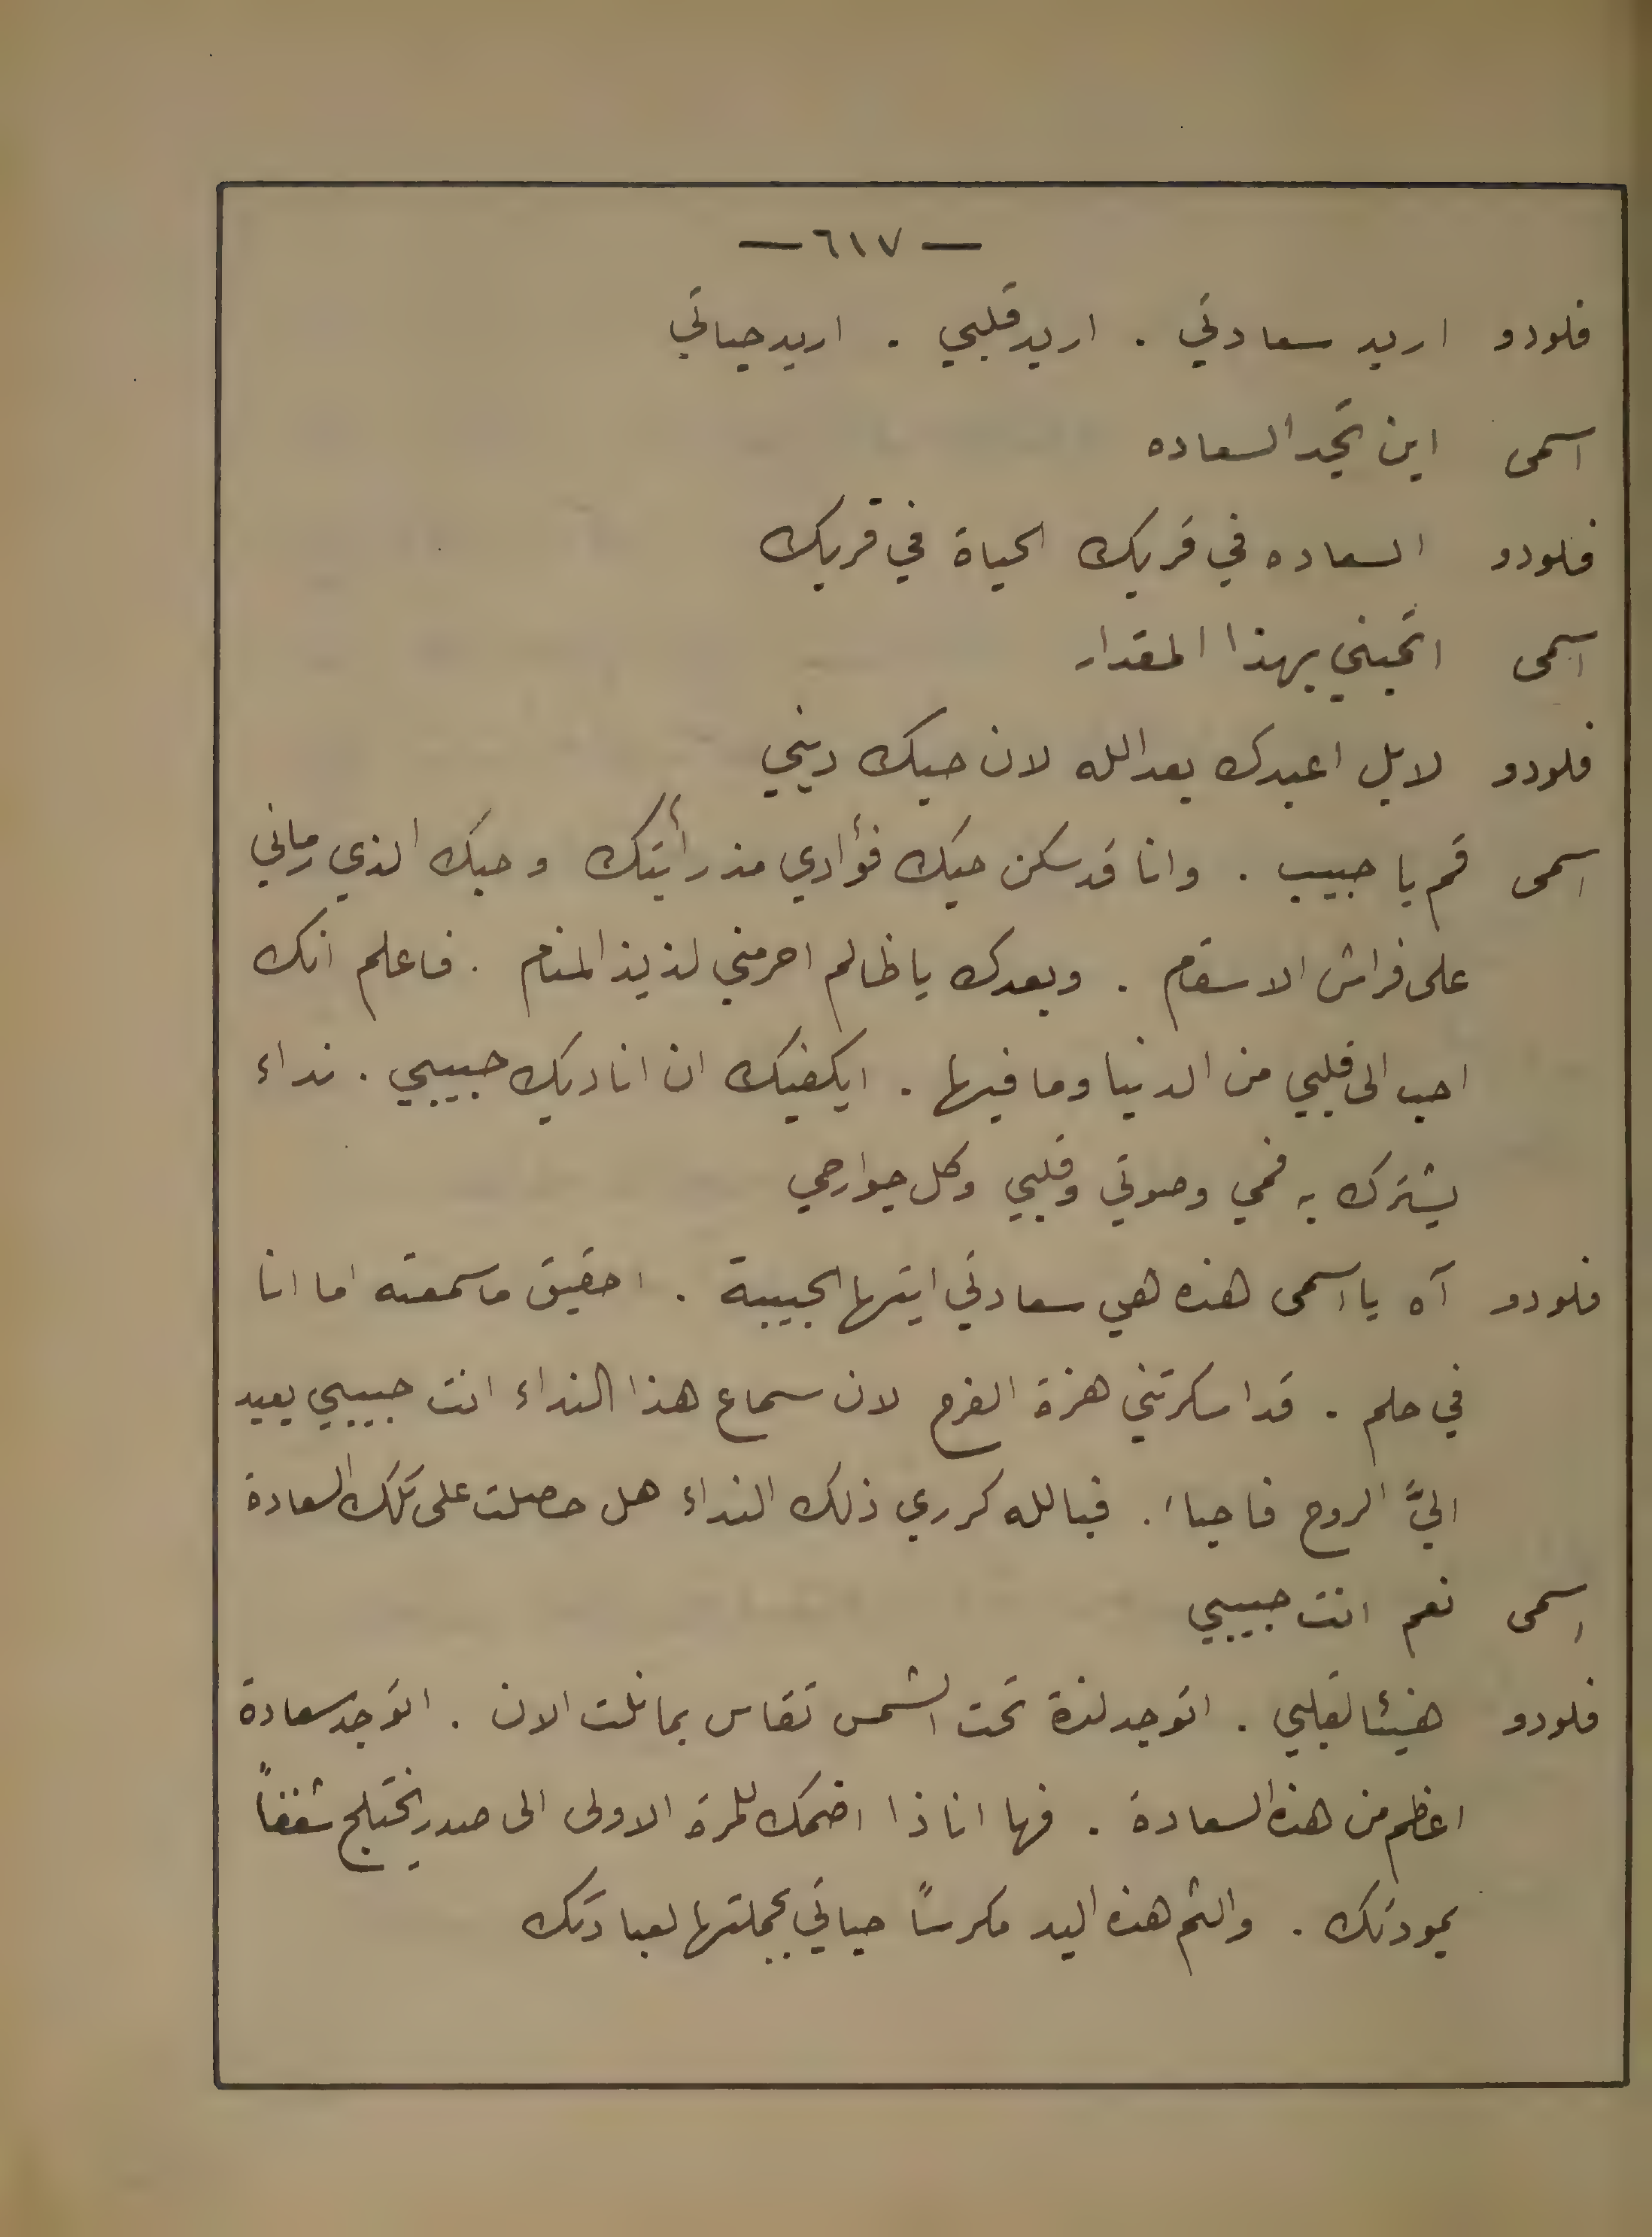 — ٦١٧ —
فلودو اريد سعادتي . اريد قلبي . اريد حياتي
اسمى اين تجد السعاده
فلودو السعاده في قربك الحياة في قربك
اسمى اتحبني بهذا المقدار
فلودو لا بل اعبدك بعد الله لان حبك ديني
اسمى قم يا حبيب . وانا قد سكن حبك فؤادي مذ رأيتك وحبك الذي رماني
على فراش الاسقام . وبعدك يا ظالم احرمني لذيذ المنام . فاعلم انك
احب الى قلبي من الدنيا وما فيها . ايكفيك ان اناديك حبيبي . نداء
يشترك به فمي وصوتي وقلبي وكل جوارحي
فلودو آه يا اسمى هذه هي سعادتي ايتها الحبيبة . احقيق ما سمعته اما انا
في حلم . قد اسكرتني هزة الفرح لان سماع هذا النداء انت حبيبي يعيد
اليَّ الروح فاحيا . فبالله كرري ذلك النداء هل حصلت على تلك السعادة
اسمى نعم انت حبيبي
فلودو هنيئا لقلبي . اتوجد لذة تحت الشمس تقاس بما نلت الان . اتوجد سعادة
اعظم من هذه السعادة . فها انا ذا اضمك للمرة الاولى الى صدر يختلج شغفاً
بمودتك . والثم هذه اليد مكرساً حياتي بجملتها لعبادتك